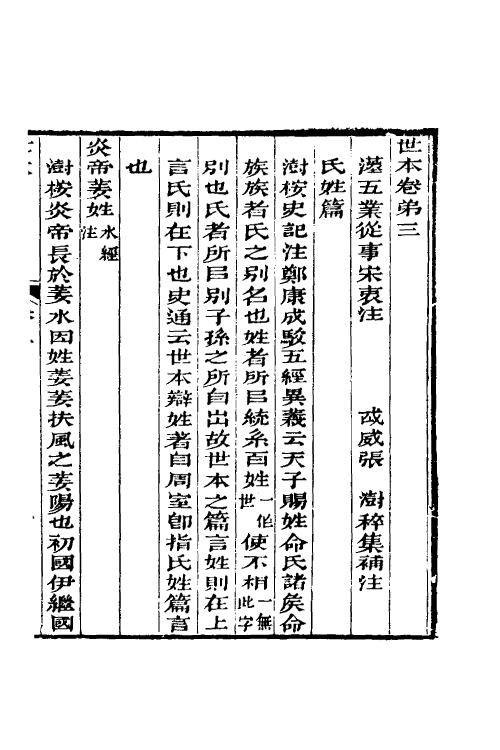 世本卷弟三
漢五業從事宋衷注　武威張　澍稡集補注
氏姓篇
澍桉史記注鄭康成駁五經異義云天子賜姓命氏諸矦命
族族者氏之别名也姓者所㠯統系百姓一作世使不相一無此字
别也氏者所㠯别子孫之所自出故世本之篇言姓則在上
言氏則在下也史通云世本辯姓著自周室卽指氏姓篇言
也
炎帝姜姓水經注
澍桉炎帝長於姜水因姓姜姜扶風之姜陽也初國伊繼國